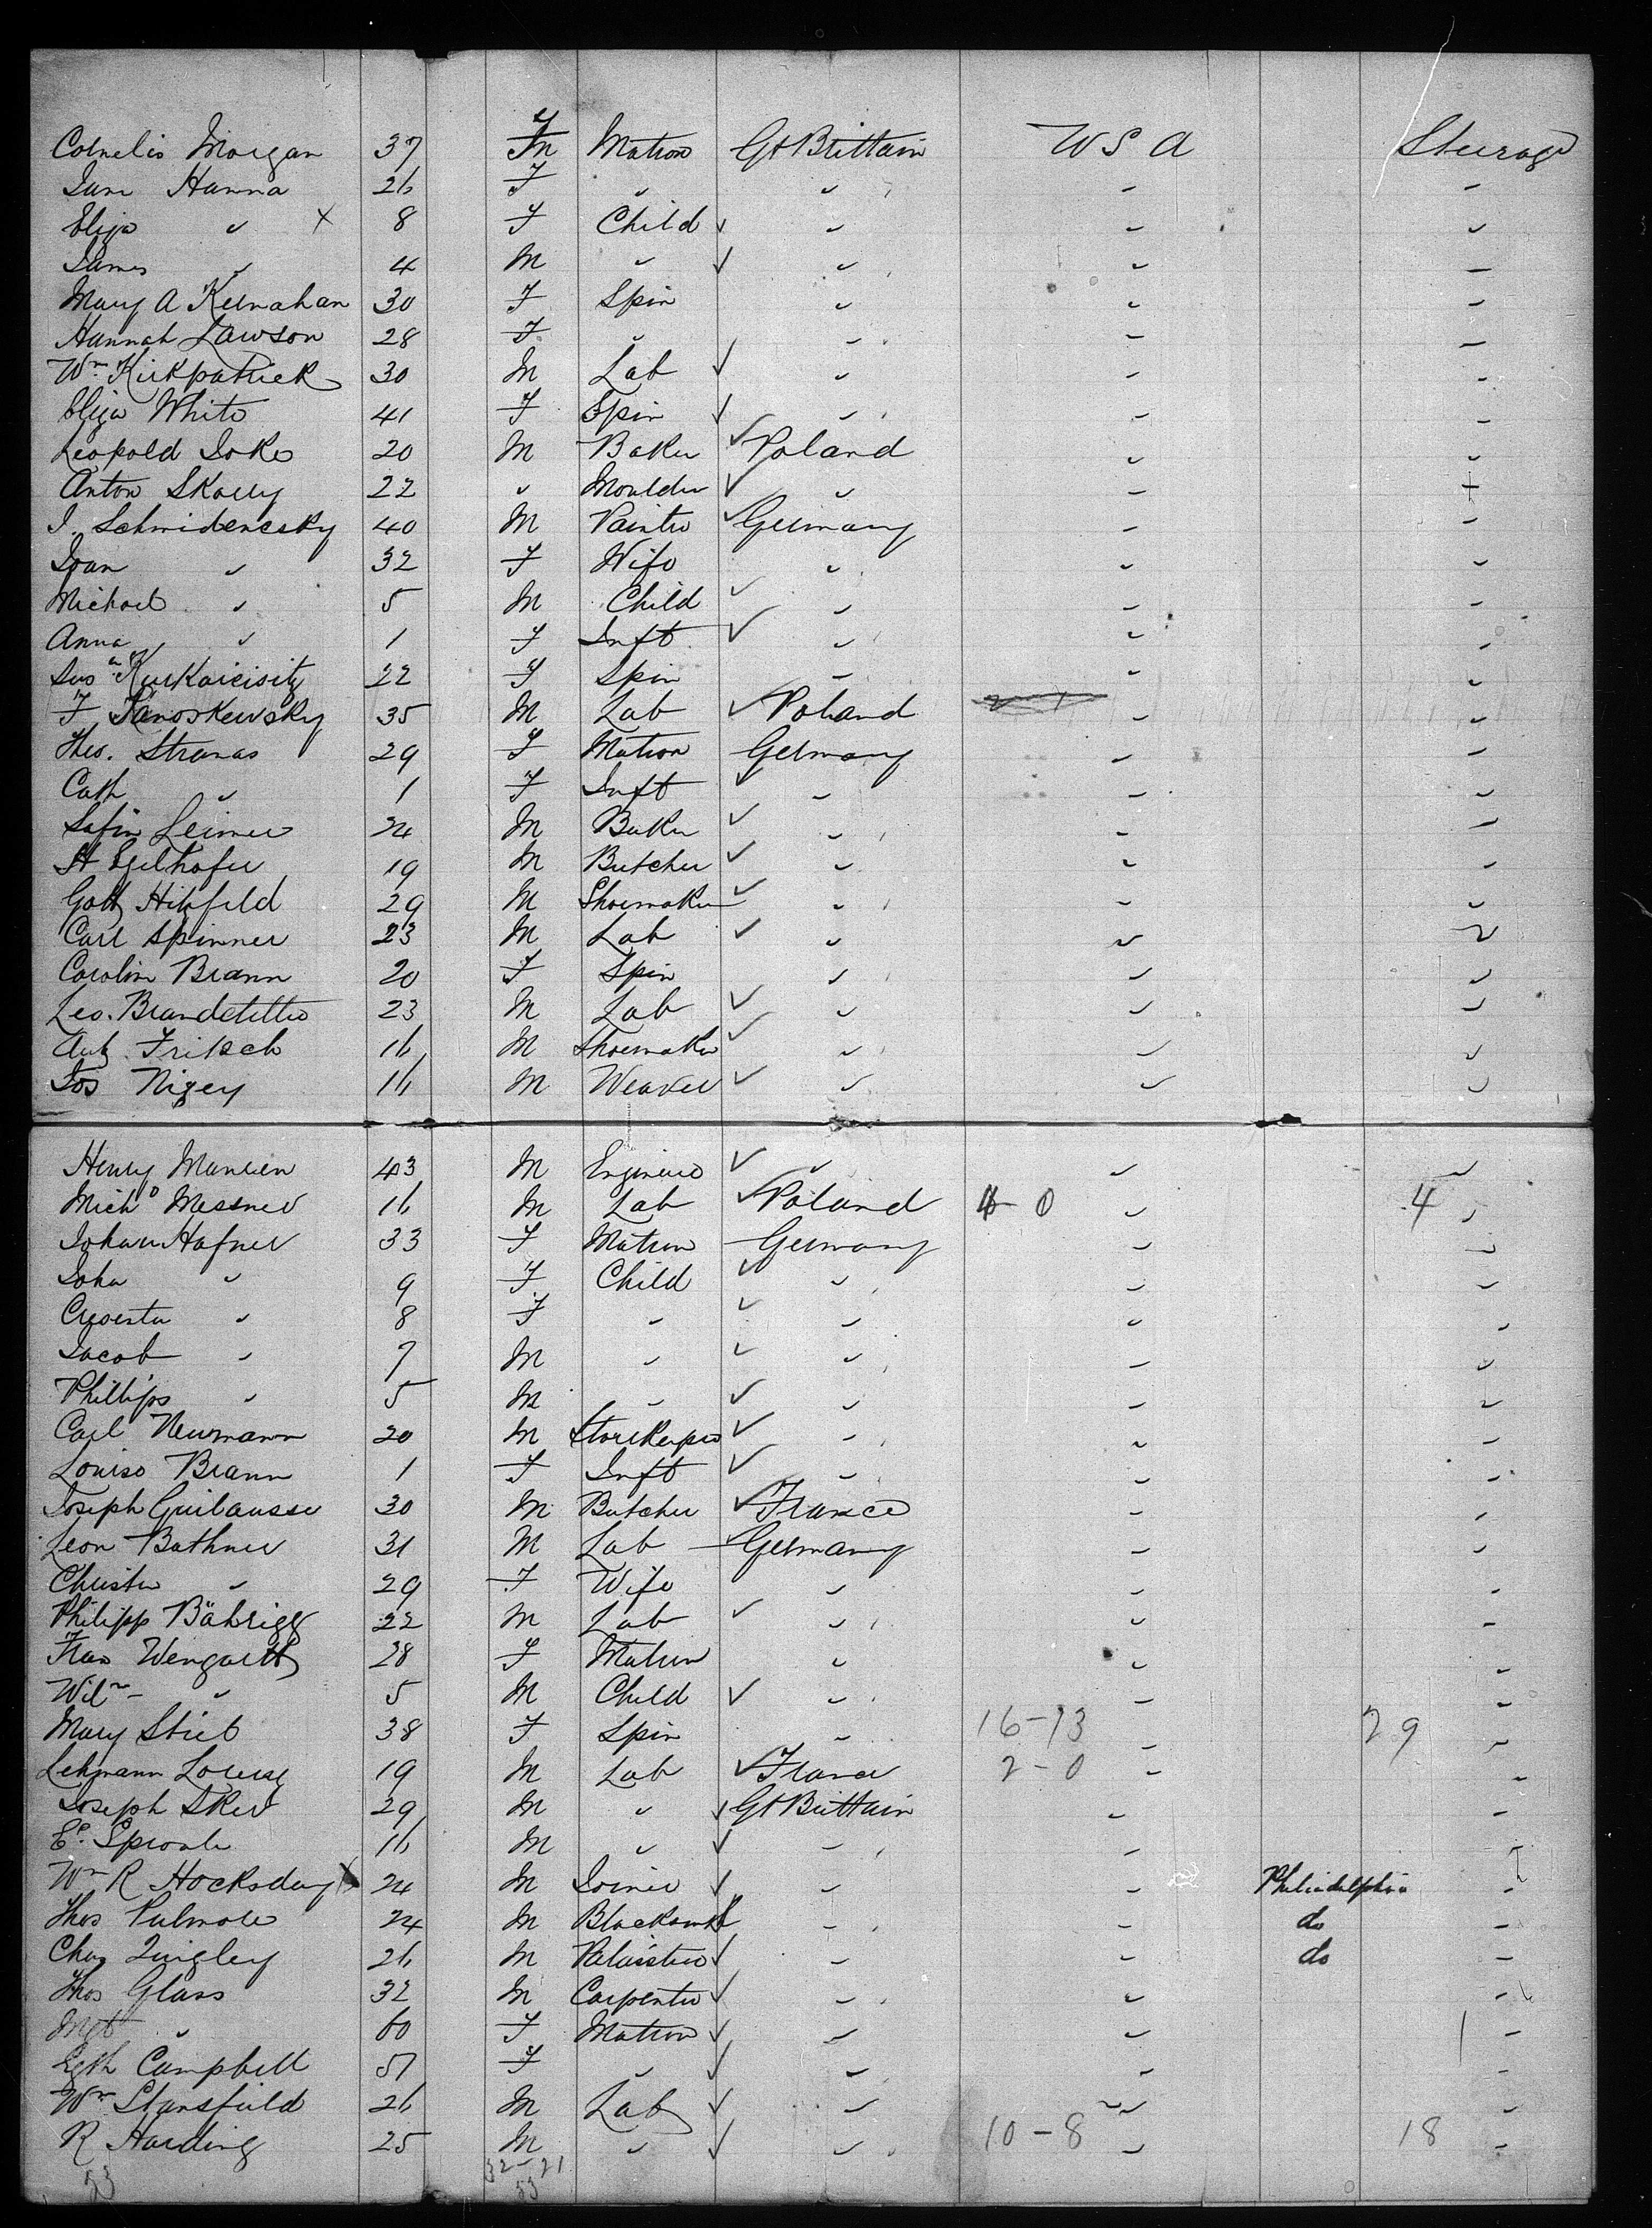 Cornelis Morgan 37 F M Matron Gt Brittain U S A Steerage
Jane Hanna 26 F " " " "
Eliza " X 8 F Child " " "
James " 4 M " " " "
Mary A Kernahan 30 F Spin " " "
Hannah Lawson 28 F " " " "
Wm Kirkpatrick 30 M Lab " " "
Eliza White 41 F Spin " " "
Leopold 20 M Baker Poland " "
Anton 22 " Moulder " " "
J. Schmidencsky 40 M Painter Germany " "
Joan " 32 F Wife " " "
Michael " 5 M Child " " "
Anna " 1 F Inft " " "
22 F Spin " " "
F 35 M Lab Poland " "
Theo. Stranas 29 F Matron Germany " "
Cath " 1 F Inft " " "
24 M Baker " " "
H Egelhofer 19 M Butcher " " "
29 M Shoemaker " " "
Carl Spinner 23 M Lab " " "
Carolin Brann 20 F Spin " " "
Leo. Brandstetter 23 M Lab " " "
Fritsch 16 M Shoemaker " " "
Jos 16 M Weaver " " "
Henry 43 M Engineer " " "
Messner 16 M Lab Poland 4-0 " 4 "
Johan Hafner 33 F Matron Germany " "
Joha " 9 F Child " " "
" 8 F " " " "
Jacob " 7 M " " " "
Phillips " 5 M " " " "
Carl Neumann 20 M Storekeeper " " "
Louise Brann 1 F Inft " " "
Joseph Guilausse 30 M Butcher France " "
Leon Bathner 31 M Lab Germany " "
Christn " 29 F Wife " " "
Philipp Bährigg 22 M Lab " " "
28 F Matron " " "
Wilm " 5 M Child " " "
Mary Stieb 38 F Spin " 16-13 " 29 "
Lehmann 19 M Lab France 2-0 " "
Joseph Sker 29 M " Gt Brittain " "
Ed. Sproule 16 M " " " "
Wm R Hocksday X 24 M Joiner " " Philiadelphia "
Thos 24 M Blacksmith " " do "
Chas Quigley 26 M " " do "
Thos Glass 32 M Carpenter " " "
Mgt " 60 F Matron " " "
Campbell 51 F " " " "
Wm Stansfield 26 M Lab " " "
R Harding 25 M " " 10-8 " 18 "
53 32-21
53